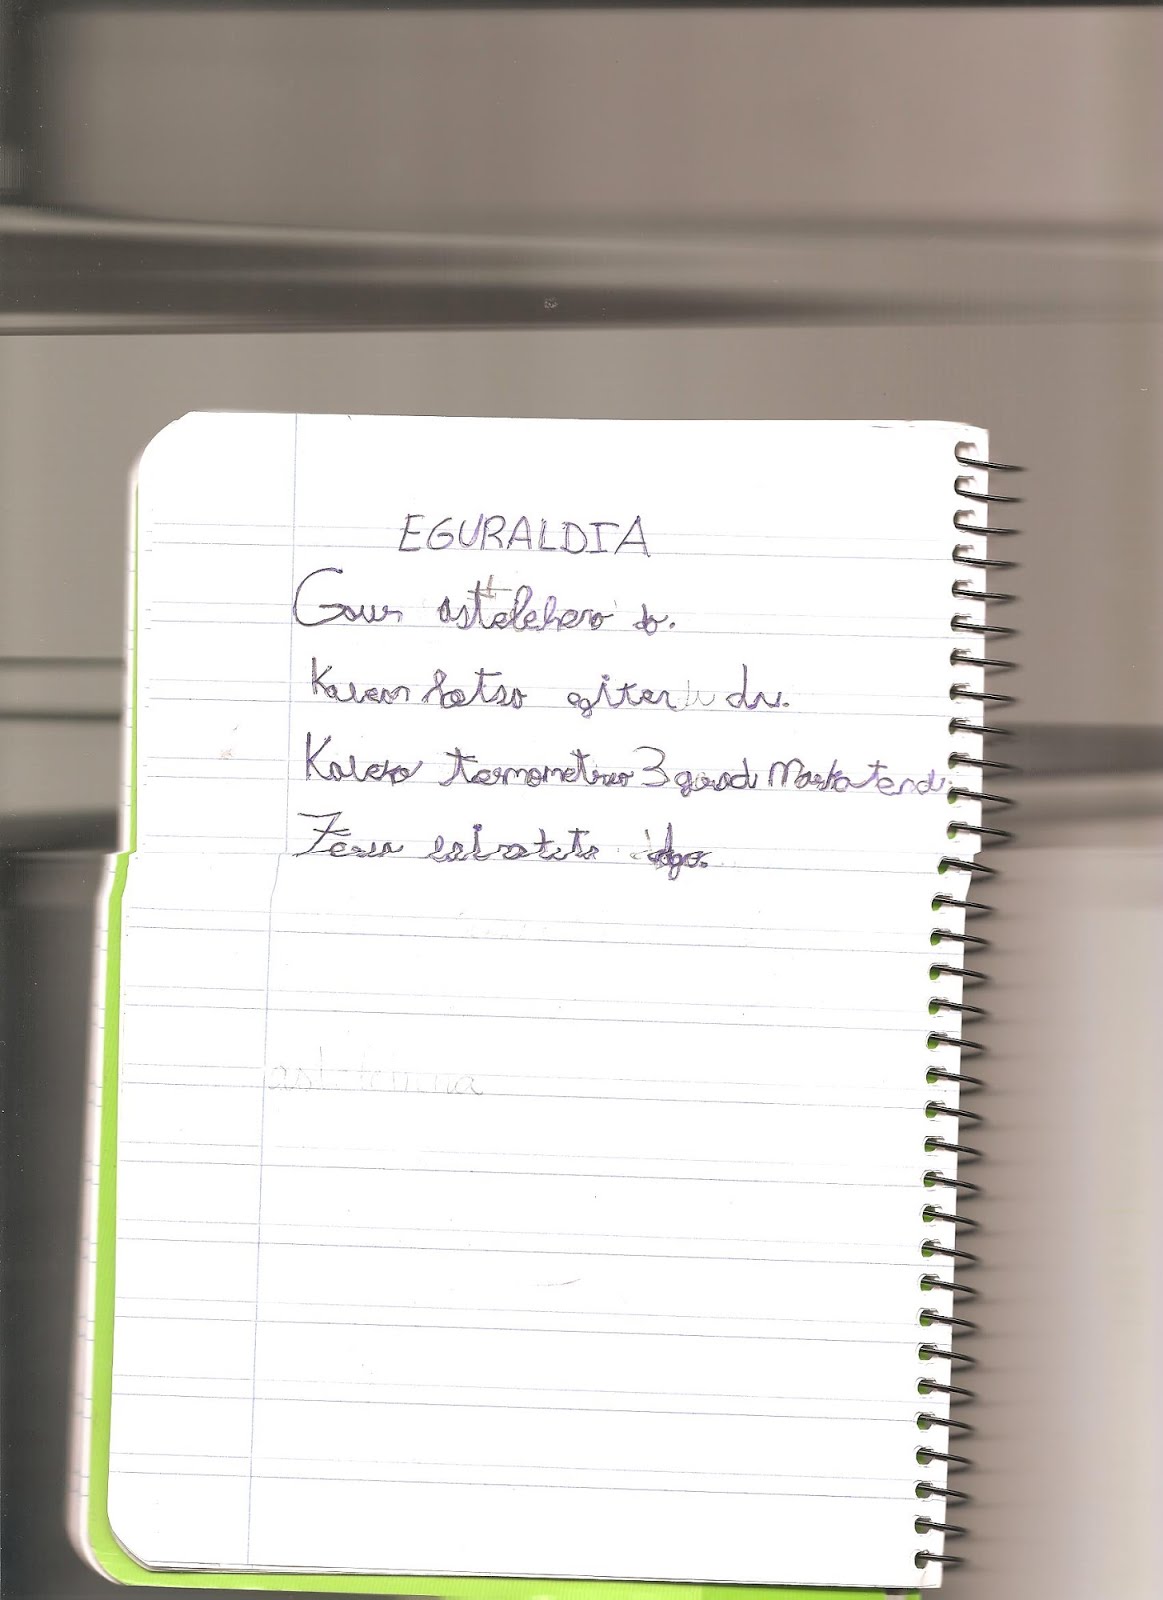 EGURALDIA
Gaur astelehero da.
Kalean hotso egiten du.
Kaleko termometruo 3 gradu Markatendu.
Zerua estratita dago.